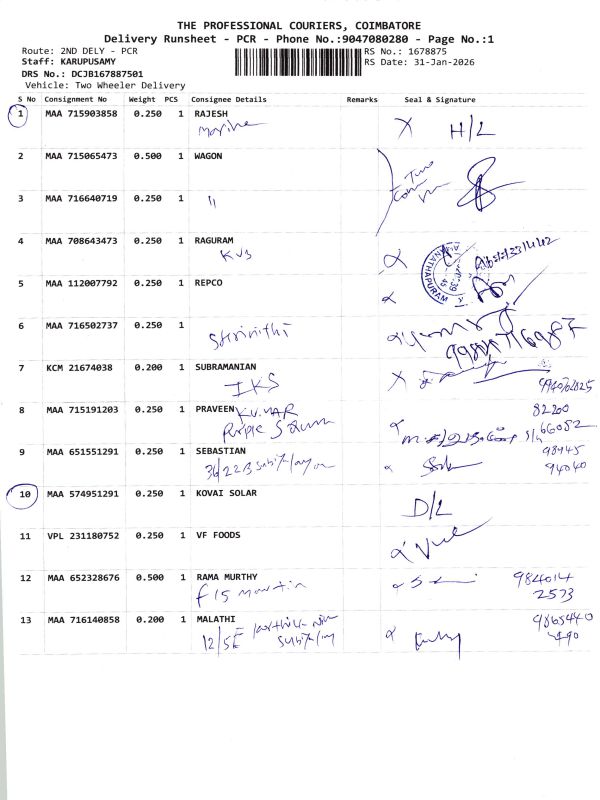 THE PROFESSIONAL COURIERS, COIMBATORE
Delivery Runsheet - PCR - Phone No.:9047080280 - Page No.:1
Route: 2ND DELY - PCR
RS No.: 1678875
Staff: KARUPUSAMY
RS Date: 31-Jan-2026
DRS No.: DCJB167887501
Vehicle: Two Wheeler Delivery
S No Consignment No Weight PCS Consignee Details Remarks Seal & Signature
1 MAA 715903858 0.250 1 RAJESH
Marine X H/L
2 MAA 715065473 0.500 1 WAGON
3 MAA 716640719 0.250 1 "
4 MAA 708643473 0.250 1 RAGURAM
KVB
5 MAA 112007792 0.250 1 REPCO
6 MAA 716502737 0.250 1
Shrinithi
7 KCM 21674038 0.200 1 SUBRAMANIAN
IKS X
8 MAA 715191203 1 0.250 PRAVEEN KUMAR
82200
Purple 66082
9 MAA 651551291 0.250 1 SEBASTIAN
98945
36/22B 94040
10 MAA 574951291 0.250 1 KOVAI SOLAR
D/L
11 VPL 231180752 0.250 1 VF FOODS
12 MAA 652328676 0.500 1 RAMA MURTHY
984014
F15 Martin 2573
13 MAA 716140858 0.200 1 MALATHI
9865440
12/5E 490